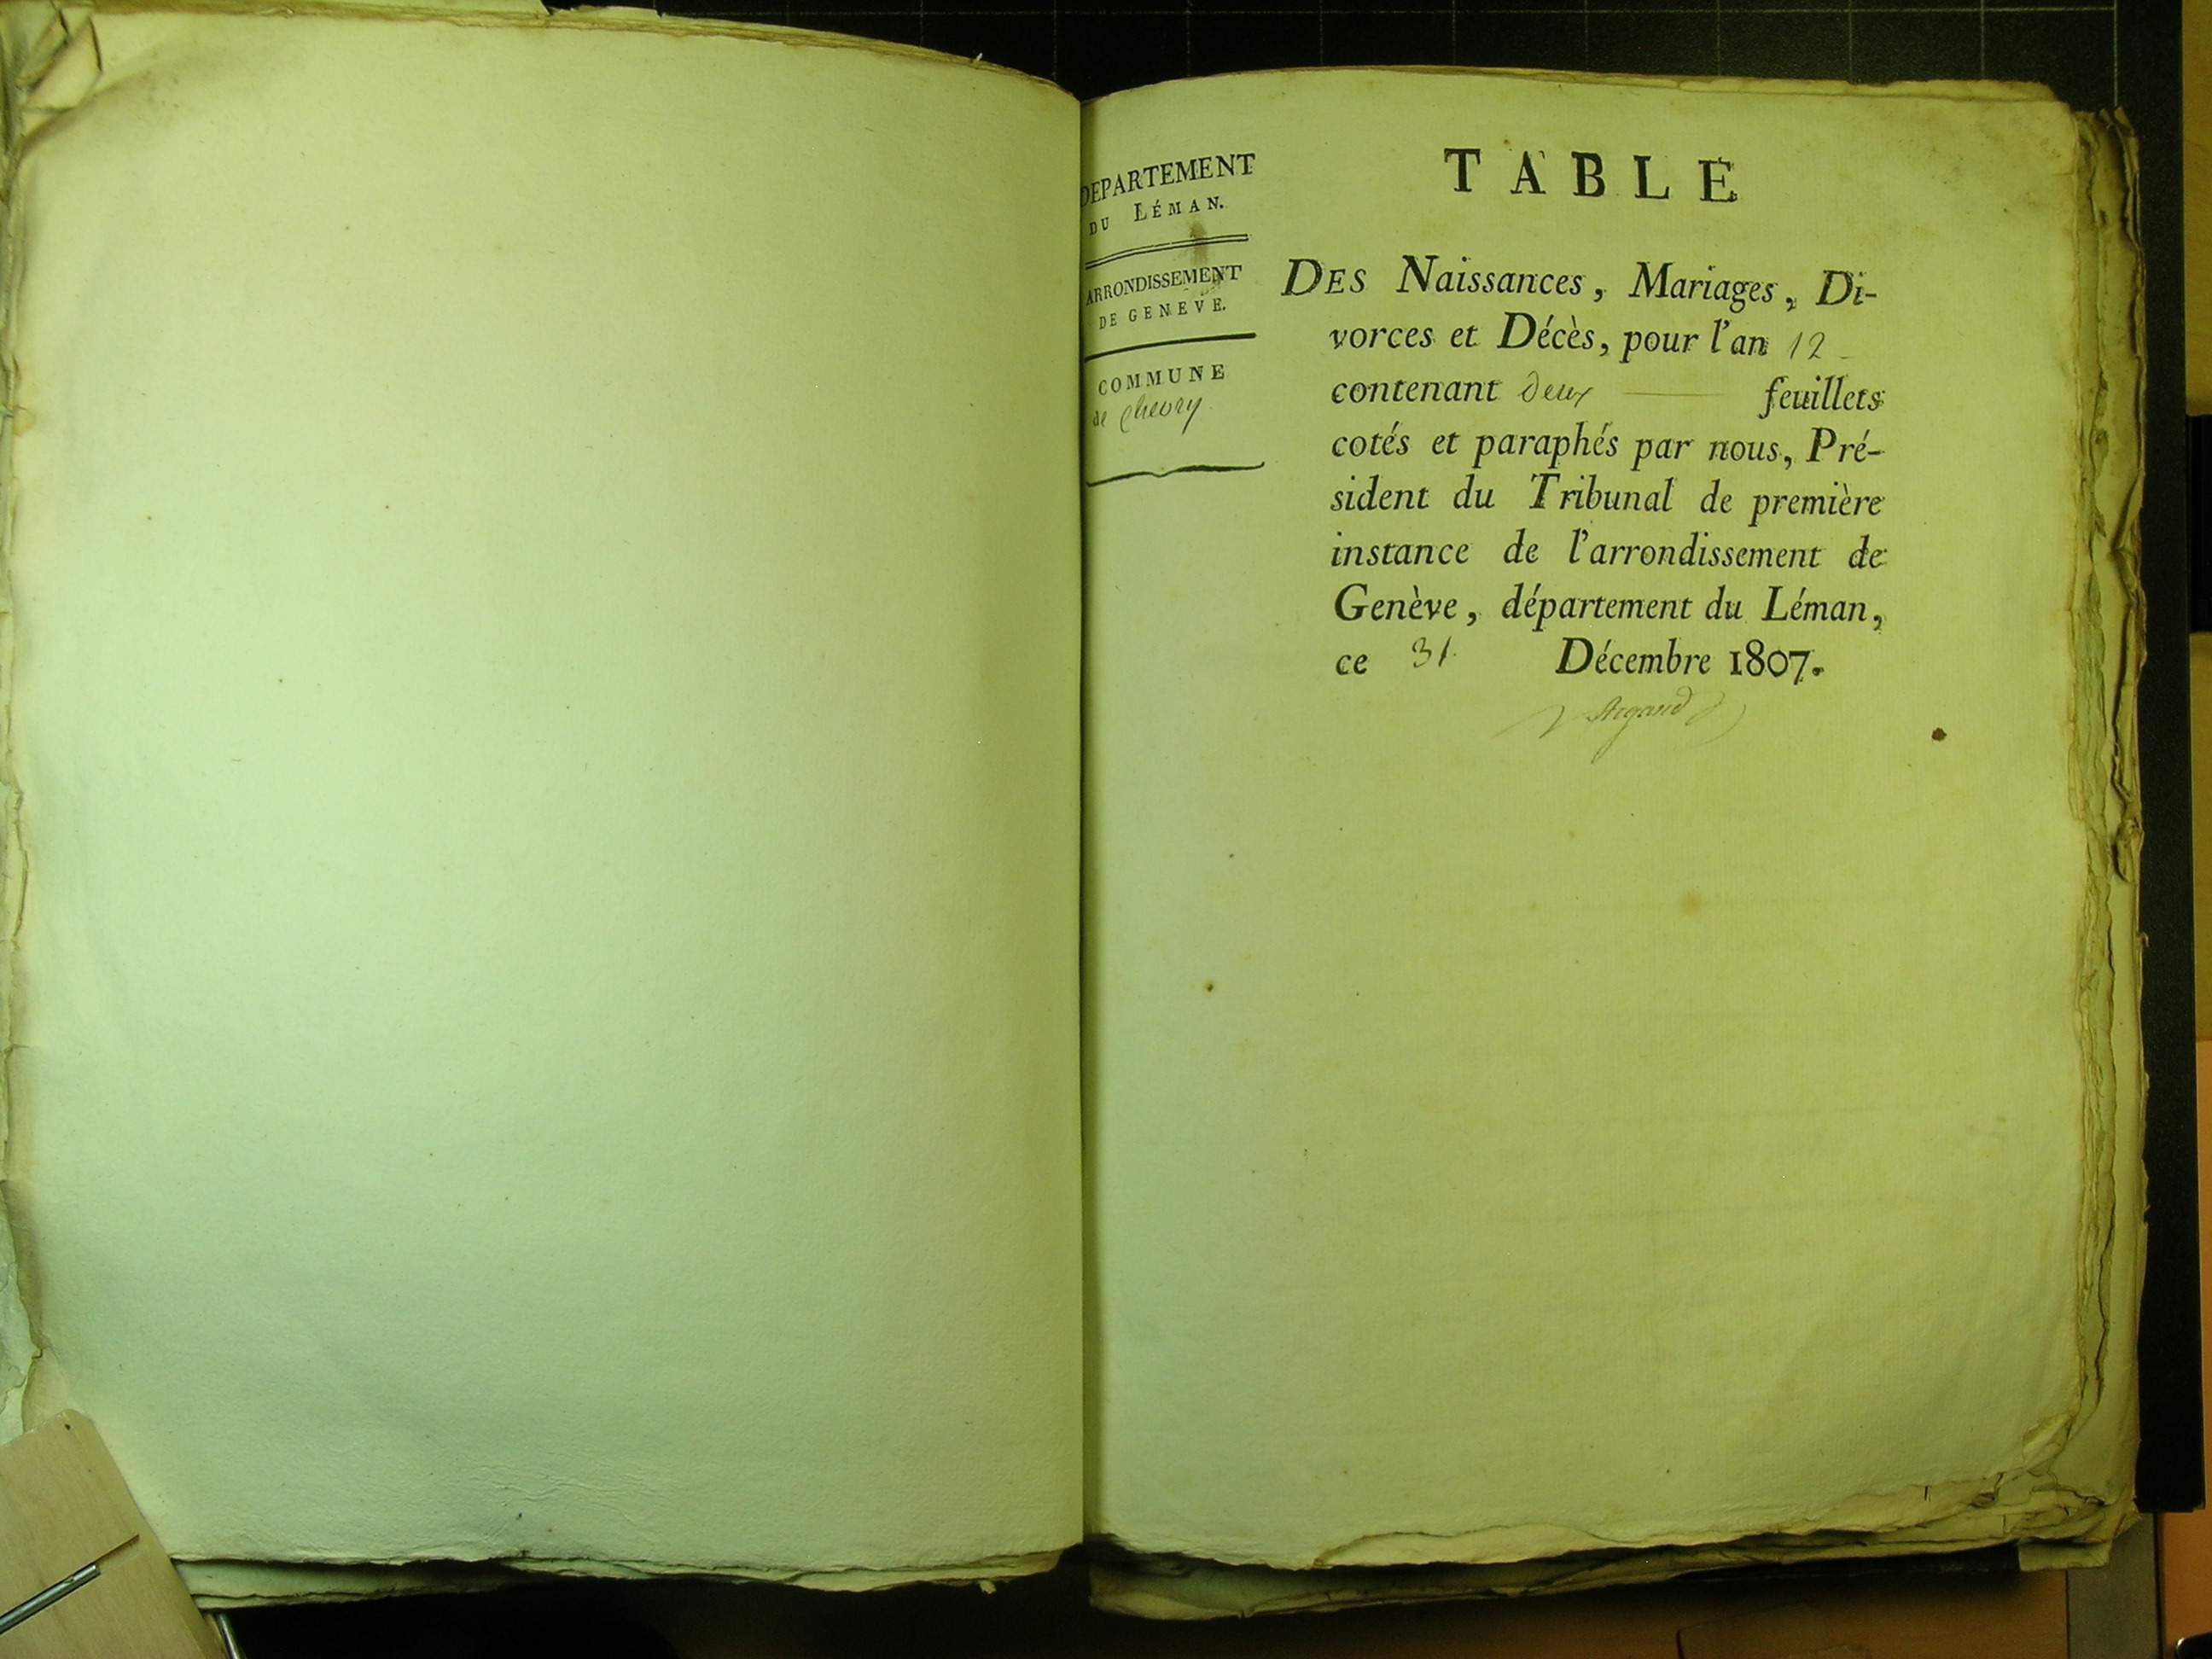 DEPARTEMENT
DU LÉMAN.
ARRONDISSEMENT
DE GENÈVE.
COMMUNE
de Chevry
TABLE
DES Naissances, Mariages, Di-
vorces et Décès, pour l'an 12
contenant deux feuillets
cotés et paraphés par nous, Pré-
sident du Tribunal de première
instance de l'arrondissement de
Genève, département du Léman,
ce 31 Décembre 1807.
Argand